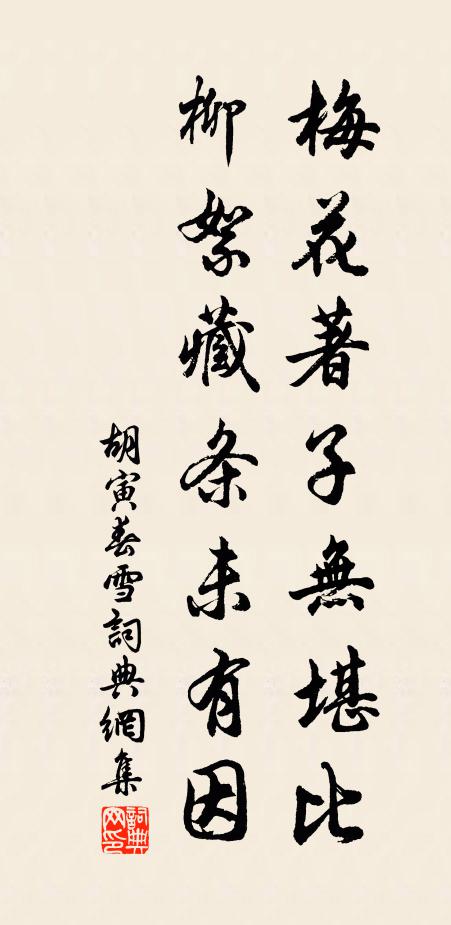 梅花著子無堪比
柳絮藏条未有因
胡寅春雪詞典網集
詞典
网印